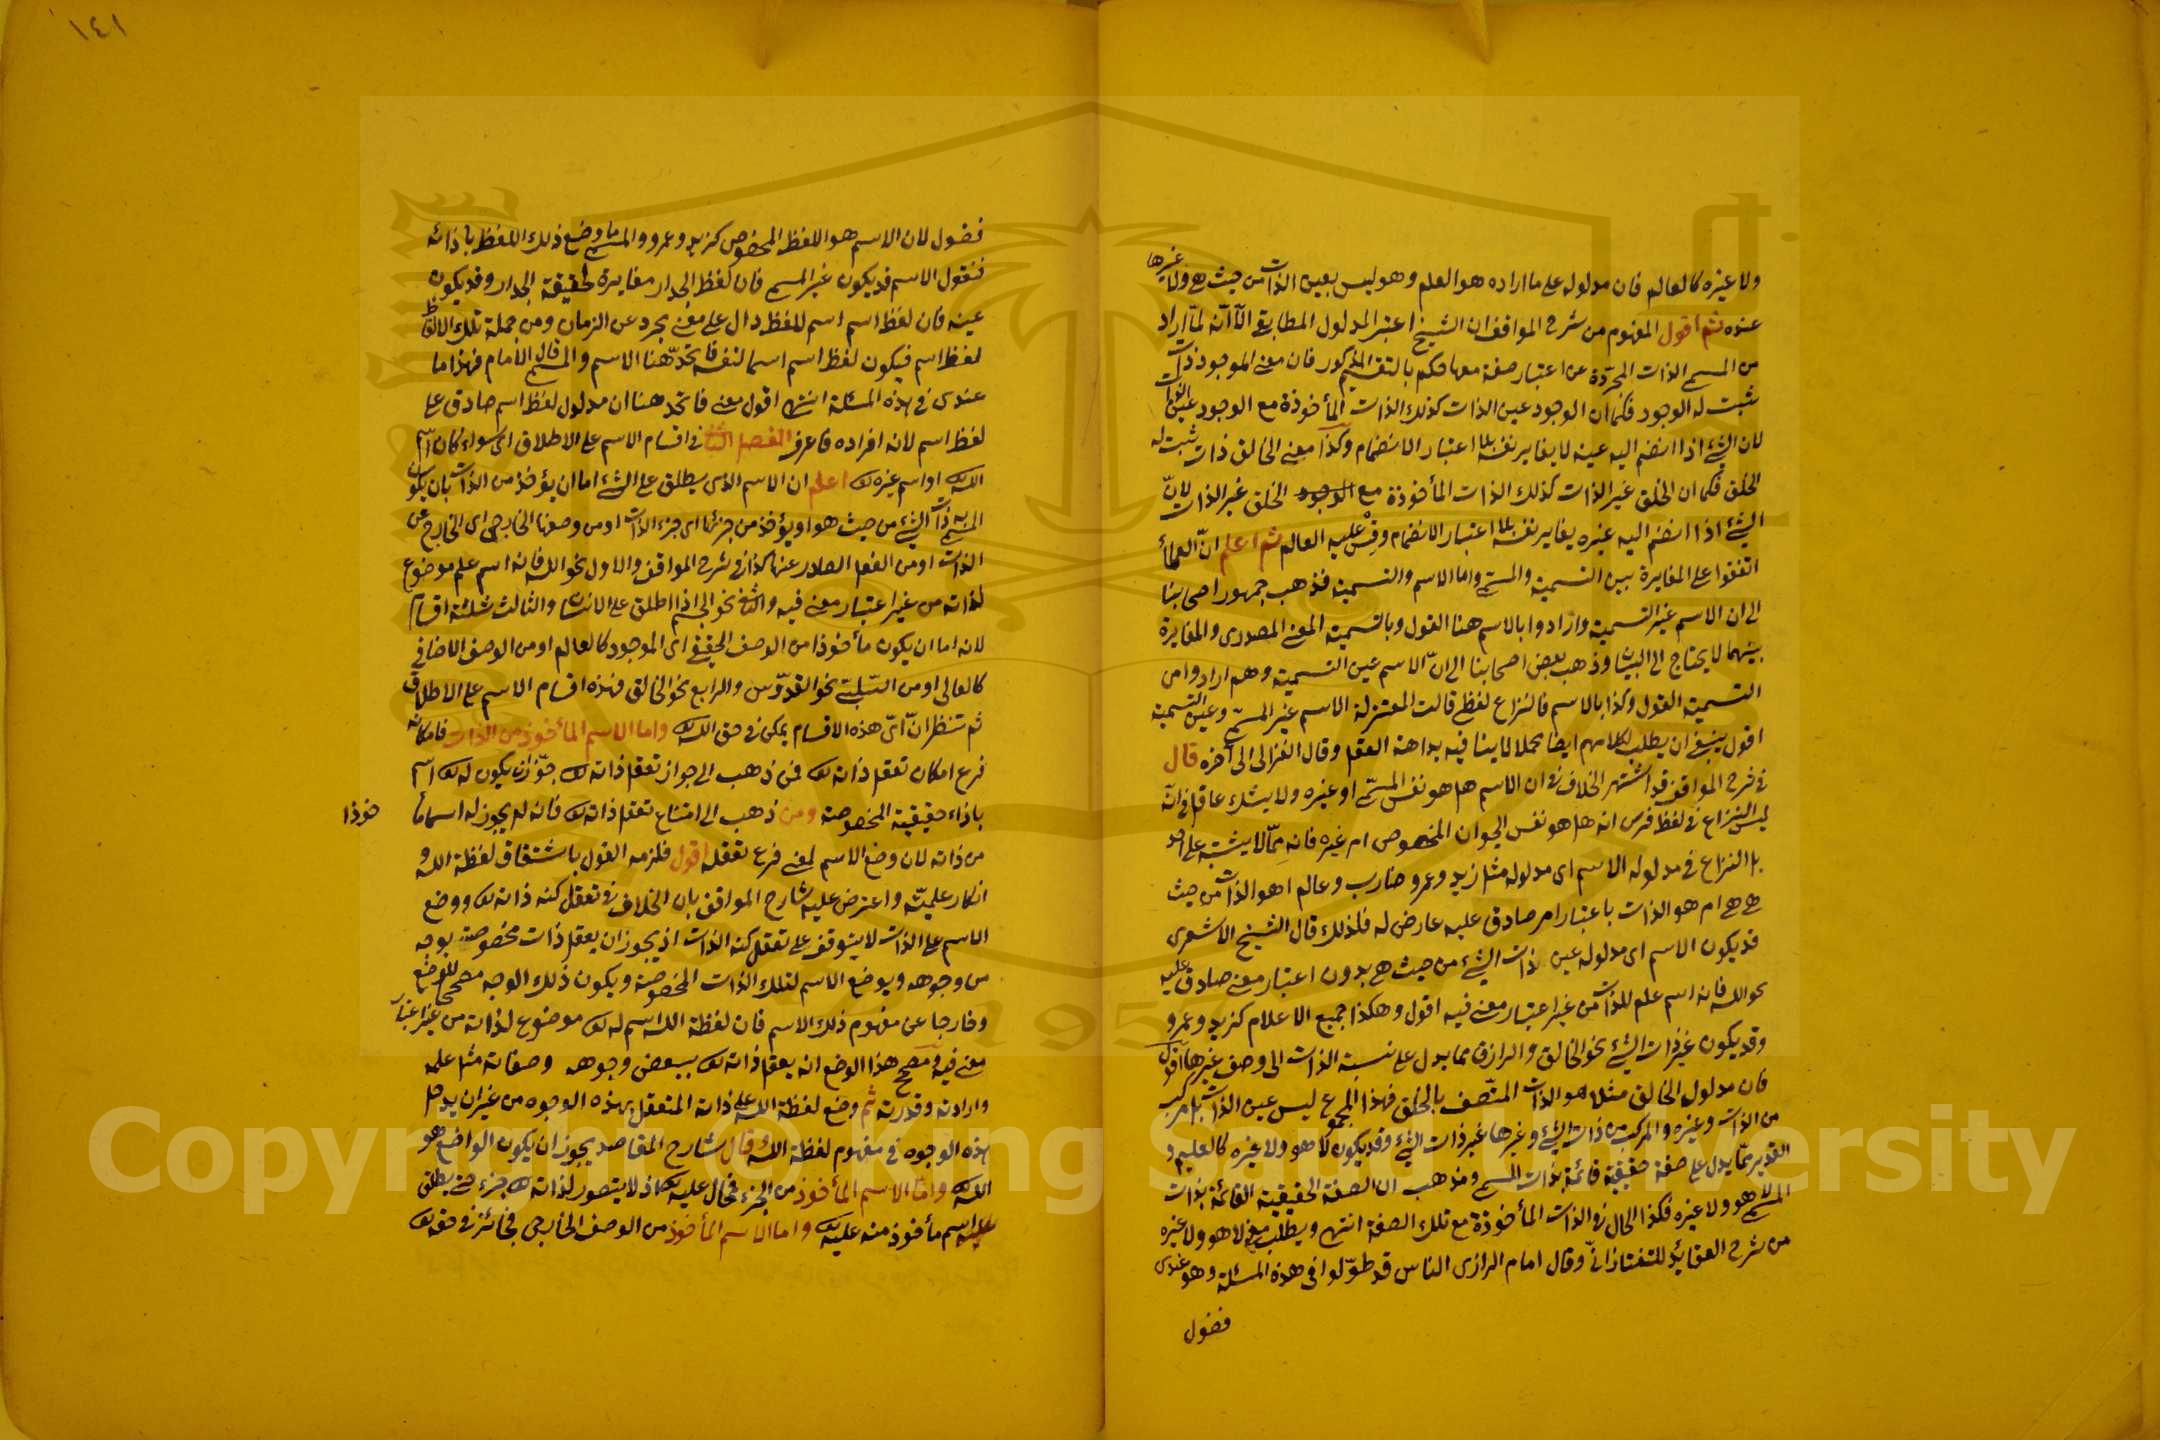 ولا غيره كالعالم فان مدلوله على ما اراده هو العلم وهو ليس بعين الذات من حيث هي ولا غيرها
عنده ثم اقول المفهوم من شرح المواقف ان الشيخ اعتبر المدلول المطابقي الا انه لما اراد
من المسمى الذات المجردة عن اعتبار صفة معها حكم بالتقسيم المذكور فان معنى الموجود ذات
ثبت له الوجود فكما ان الوجود عين الذات كذلك الذات المأخوذة مع الوجود عين الذات
لان الشئ اذا انضم اليه عينه لا يغاير نفسه بلا اعتبار الانضمام وكذا معنى الخالق ذات ثبت له
الخلق فكما ان الخلق غير الذات كذلك الذات المأخوذة مع الوجود الخلق غير الذات لان
الشئ اذا انضم اليه غيره يغاير نفسه بلا اعتبار الانضمام وقس عليه العالم ثم اعلم ان العلماء
اتفقوا على المغايرة بين التسمية والمسمى واما الاسم والتسمية فذهب جمهور اصحابنا
الى ان الاسم غير التسمية وارادوا بالاسم هنا القول وبالتسمية المعنى المصدرى والمغايرة
بينهما لا يحتاج الى البيان وذهب بعض اصحابنا الى ان الاسم عين التسمية وهم ارادوا من
التسمية القول وكذا بالاسم فالنزاع لفظى قالت المعتزلة الاسم غير المسمى وعين التسمية
اقول ينبغى ان يطلب لكلامهم ايضا محملا لا ينافيه بداهة العقل وقال الغزالى الى آخره قال
فى شرح المواقف قد اشتهر الخلاف فى ان الاسم هل هو نفس المسمى او غيره ولا يشك عاقل فى انه
ليس النزاع فى لفظ فرس انه هل هو نفس الحيوان المخصوص ام غيره فانه مما لا يشتبه على احد
بل النزاع فى مدلوله الاسم اى مدلوله مثل زيد وعمرو ضارب وعالم اهو الذات من حيث
هى هى ام هو الذات باعتبار امر صادق عليه عارض له فلذلك قال الشيخ الاشعرى
قد يكون الاسم اى مدلوله عين ذات الشئ من حيث هى بدون اعتبار معنى صادق عليه
نحو الله فانه اسم علم للذات من غير اعتبار معنى فيه اقول وهكذا جميع الاعلام كزيد وعمرو
وقد يكون غير ذات الشئ نحو الخالق والرازق مما يدل على نسبة الذات الى وصف غيرها اقول
فان مدلول الخالق مثلا هو الذات المتصف بالخلق فهذا المجموع ليس عين الذات بل مركب
من الذات وغيره والمركب من ذات الشئ وغيرها غير ذات الشئ وقد يكون لا هو ولا غيره كالعليم و
القدير مما يدل على صفة حقيقية قائمة بذات المسمى ومذهب ان الصفة الحقيقية القائمة بذات
المسمى لا هو ولا غيره فكذا الحال فى الذات المأخوذة مع تلك الصفة انتهى ويطلب معنى لا هو ولا غيره
من شرح العقائد للتفتازانى وقال امام الرازى الناس قد طولوا فى هذه المسئلة وهو عندى
فضول
١٤١
فضول لان الاسم هو اللفظ المخصوص كزيد وعمرو والمسمى ما وضع ذلك اللفظ بازائه
فنقول الاسم قد يكون غير المسمى فان لفظ الجدار مغايرة لحقيقة الجدار وقد يكون
عينه فان لفظ اسم اسم للفظ دال على معنى مجرد عن الزمان ومن جملة تلك الالفاظ
لفظ اسم فيكون لفظ اسم اسما لنفسه فاتحد ههنا الاسم والمسمى قال الامام فهذا ما
عندى فى هذه المسئلة انتهى اقول معنى فاتحد هنا ان مدلول لفظ اسم صادق على
لفظ اسم لانه افراده فاعرف الفصل الثانى فى اقسام الاسم على الاطلاق اى سواء كان اسم
الله او اسم غيره تعالى اعلم ان الاسم الذى يطلق على الشئ اما ان يؤخذ من الذات بان يكون
المسمى به ذات الشئ من حيث هو او يؤخذ من جزئها اى جزء الذات او من وصفها الخارجى اى الخارج عن
الذات او من الفعل الصادر عنها كذا فى شرح المواقف والاول نحو الله فانه اسم علم موضوع
لذاته من غير اعتبار معنى فيه والثانى نحو الجسم اذا اطلق على الانسان والثالث ثلثة اقسام
لانه اما ان يكون مأخوذا من الوصف الحقيقى اى الموجود كالعالم او من الوصف الاضافى
كالعالى او من السلبى نحو القدوس والرابع نحو الخالق فهذه اقسام الاسم على الاطلاق
ثم تنظر ان اى هذه الاقسام يمكن فى حق الله تعالى واما الاسم المأخوذ من الذات فامكانه
فرع امكان تعقل ذاته تعالى فمن ذهب الى جواز تعقل ذاته تعالى جوز ان يكون له تعالى اسم
بازاء حقيقته المخصوصة ومن ذهب الى امتناع تعقل ذاته تعالى فانه لم يجوز له اسما مأ
خوذا
من ذاته لان وضع الاسم لمعنى فرع تعقله اقول فلزمه القول باشتقاق لفظة الله و
انكار علميته واعترض عليه شارح المواقف بان الخلاف فى تعقل كنه ذاته تعالى ووضع
الاسم على الذات لا يتوقف على تعقل كنه الذات اذ يجوز ان يعقل ذات مخصوصة بوجه
من وجوهه ويوضع الاسم لتلك الذات المخصوصة ويكون ذلك الوجه مصححا للوضع
وخارجا عن مفهوم ذلك الاسم فان لفظة الله اسم له تعالى موضوع لذاته من غير اعتبار
معنى فيه ومصحح هذا الوضع انه يعقل ذاته تعالى ببعض وجوهه وصفاته مثل علمه
وارادته وقدرته ثم وضع لفظة الله على ذاته المتعقل بهذه الوجوه من غير ان يدخل
هذه الوجوه فى مفهوم لفظة الله قال شارح المقاصد يجوز ان يكون الواضع هو
الله تعالى واما الاسم المأخوذ من الجزء فمحال عليه تعالى اذ لا يتصور لذاته تعالى جزء حتى يطلق
عليه اسم مأخوذ منه عليه تعالى واما الاسم المأخوذ من الوصف الخارجى فجائز فى حقه تعالى
Copyright © King Saud University
1957